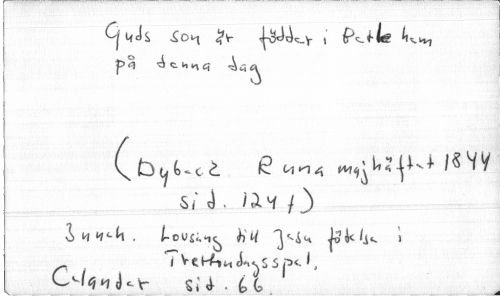 Guds son är föddar i Betlehem
på denna dag
(Dybeck Runa majhäftet 1844
sid. 124 f)
Lovsång till Jesu födelse i
Trettondagsspel.
Celander sid. 66.